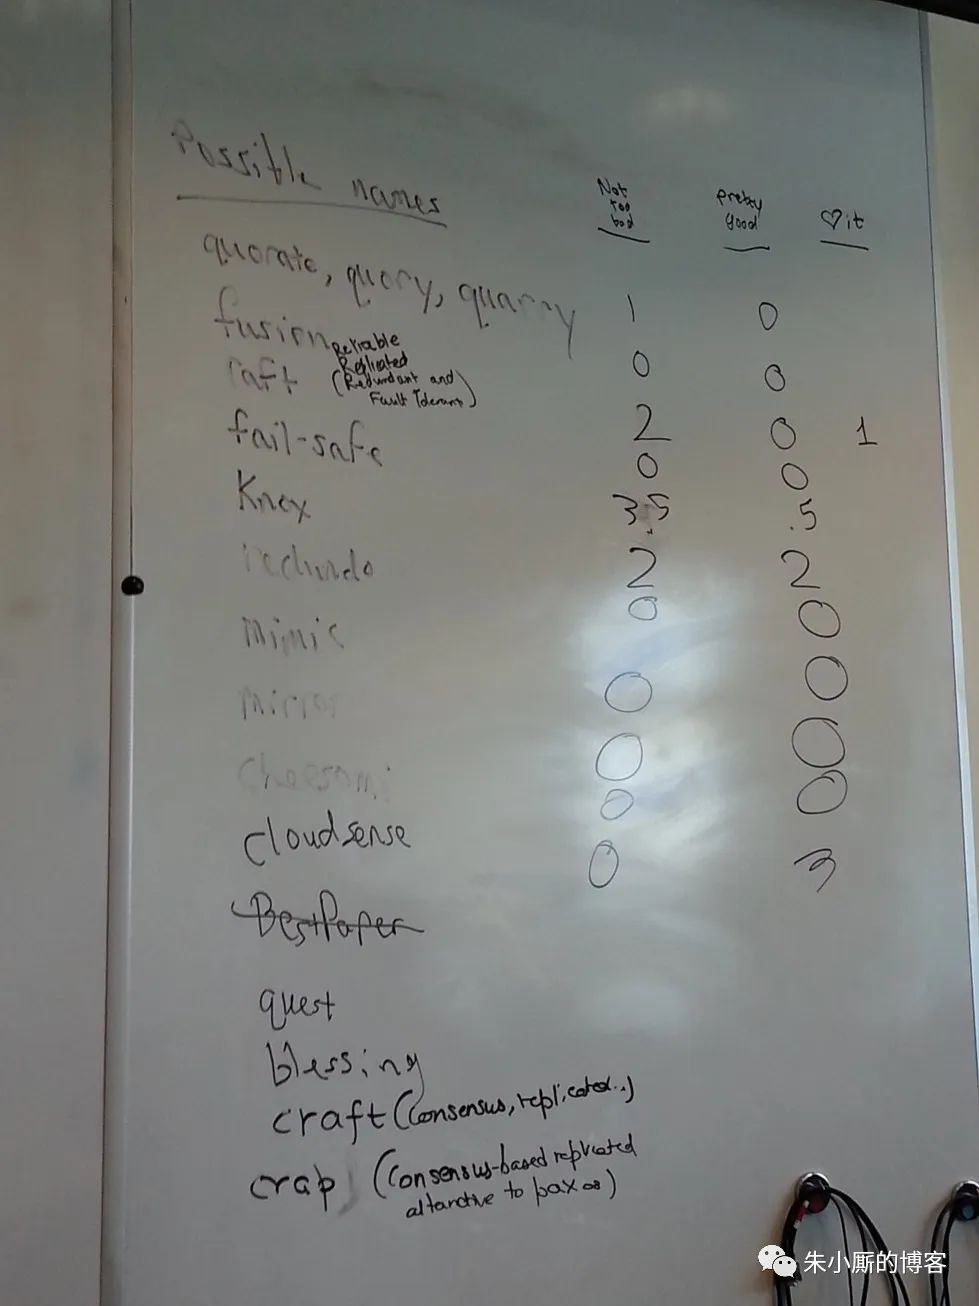 Possible names
Not too bad
Pretty good
♡it
quorate, quory, quarry 1 0
fusion 0 0
raft Reliable Replicated (Redundant and Fault Tolerant) 2 0 1
fail-safe 0 0
Knox 3.5 .5
redundo 2 2
mimic 0 0
mirror 0 0
cheesomi 0 0
cloudsense 0 0
BestPaper 0 3
quest
blessing
craft (Consensus, replicated..)
crap (Consensus-based replicated
altanative to paxos)
朱小厮的博客